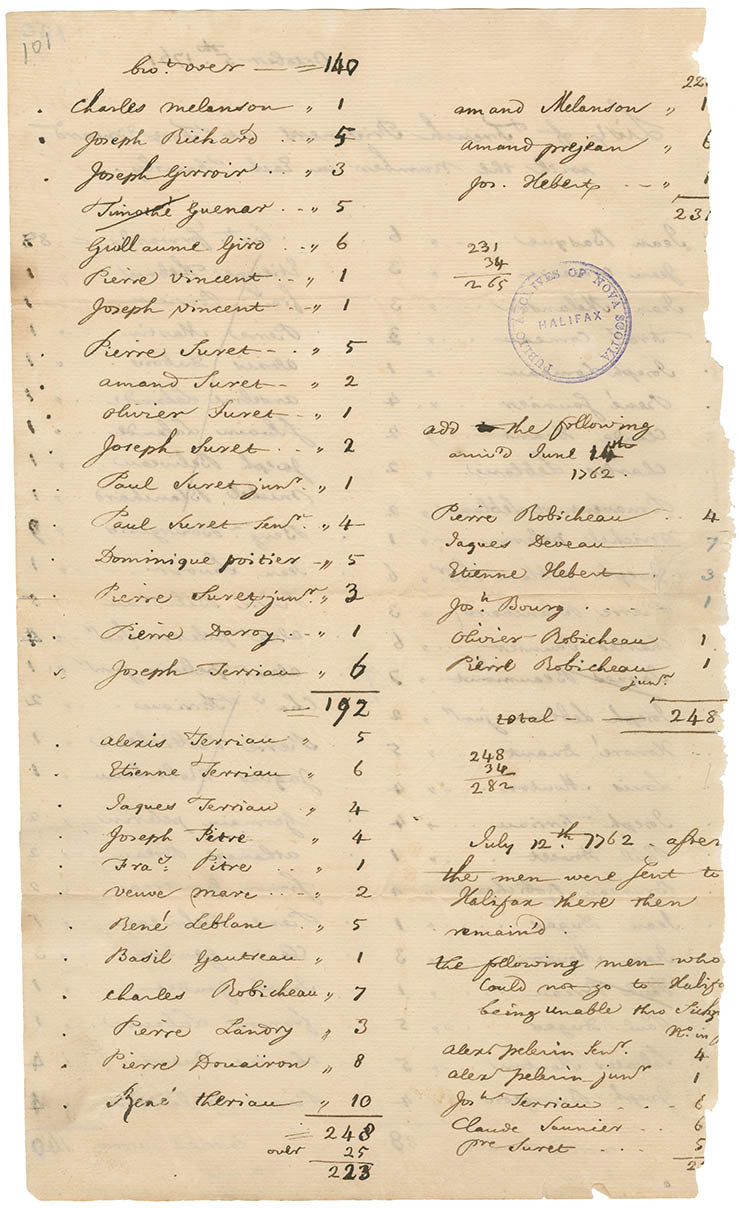 101
bro.t over — = 140
Charles melanson " 1
Joseph Richard .. " 5
Joseph Girroir .. " 3
Timothé Guenar .. " 5
Guillaume Giro .. " 6
Pierre Vincent .. " 1
Joseph Vincent .. " 1
Pierre Suret .. " 5
amand Suret .. " 2
olivier Suret .. " 1
Joseph Suret .. " 2
Paul Suret jun.r " 1
Paul Suret Sen.r " 4
Dominique poitier " 5
Pierre Suret jun.r " 3
Pierre Daroy .. " 1
Joseph Terriau " 6
= 192
alexis Terriau " 5
Etienne Terriau " 6
Jaques Terriau " 4
Joseph Pitre " 4
Fra.s Pitre .. " 1
veuve marc .. " 2
René Leblanc " 5
Basil Gautreau " 1
Charles Robicheau " 7
Pierre Landry " 3
Pierre Douairon " 8
René theriau " 10
= 248
over 25
223
22
amand Melanson " 1
amand prejean " 6
Jos. Hebert .. " 1
231
231
34
265
PUBLIC ARCHIVES OF NOVA SCOTIA
HALIFAX
add the following
arriv'd June 14th
1762.
Pierre Robicheau .. 4
Jaques Deveau 7
Etienne Hebert 3
Jos.h Bourg . 1
olivier Robicheau 1
Pierre Robicheau 1
jun.r
total - — 248
248
34
282
July 12.th 1762. after
the men were sent to
Halifax there then
remain'd.
the following men who
Could not go to Halifa
being unable thro Sickn
No. in
alex.s pelerin Sen.r 4
alex.s pelerin jun.r 1
Jos.h Terriau .. 6
Claude Saunier .. 6
pre Suret .... 5
2